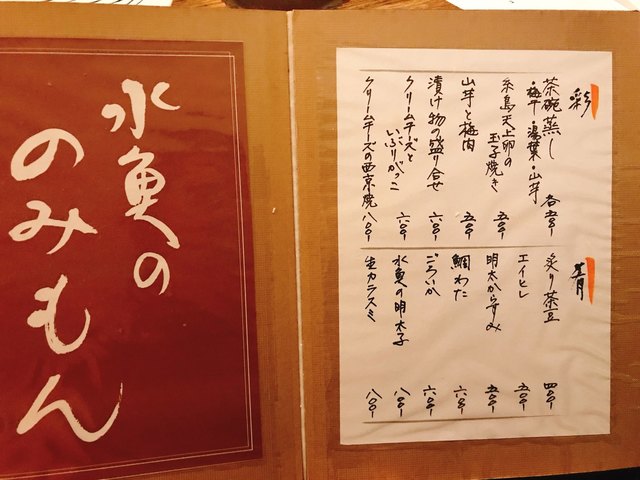 水魚の
のみもん
彩
茶碗蒸し
・梅干・湯葉・山芋 各五〇〇
糸島天上卵の
玉子焼き 五〇〇
山芋と梅肉 五〇〇
漬け物の盛り合せ 六〇〇
クリームチーズと
いぶりがっこ 六〇〇
クリームチーズの西京焼 八〇〇
肴
炙り茶豆 四〇〇
エイヒレ 五〇〇
明太からすみ 五〇〇
鯛わた 六〇〇
ごろいか 六〇〇
水魚の明太子 八〇〇
生カラスミ 八〇〇